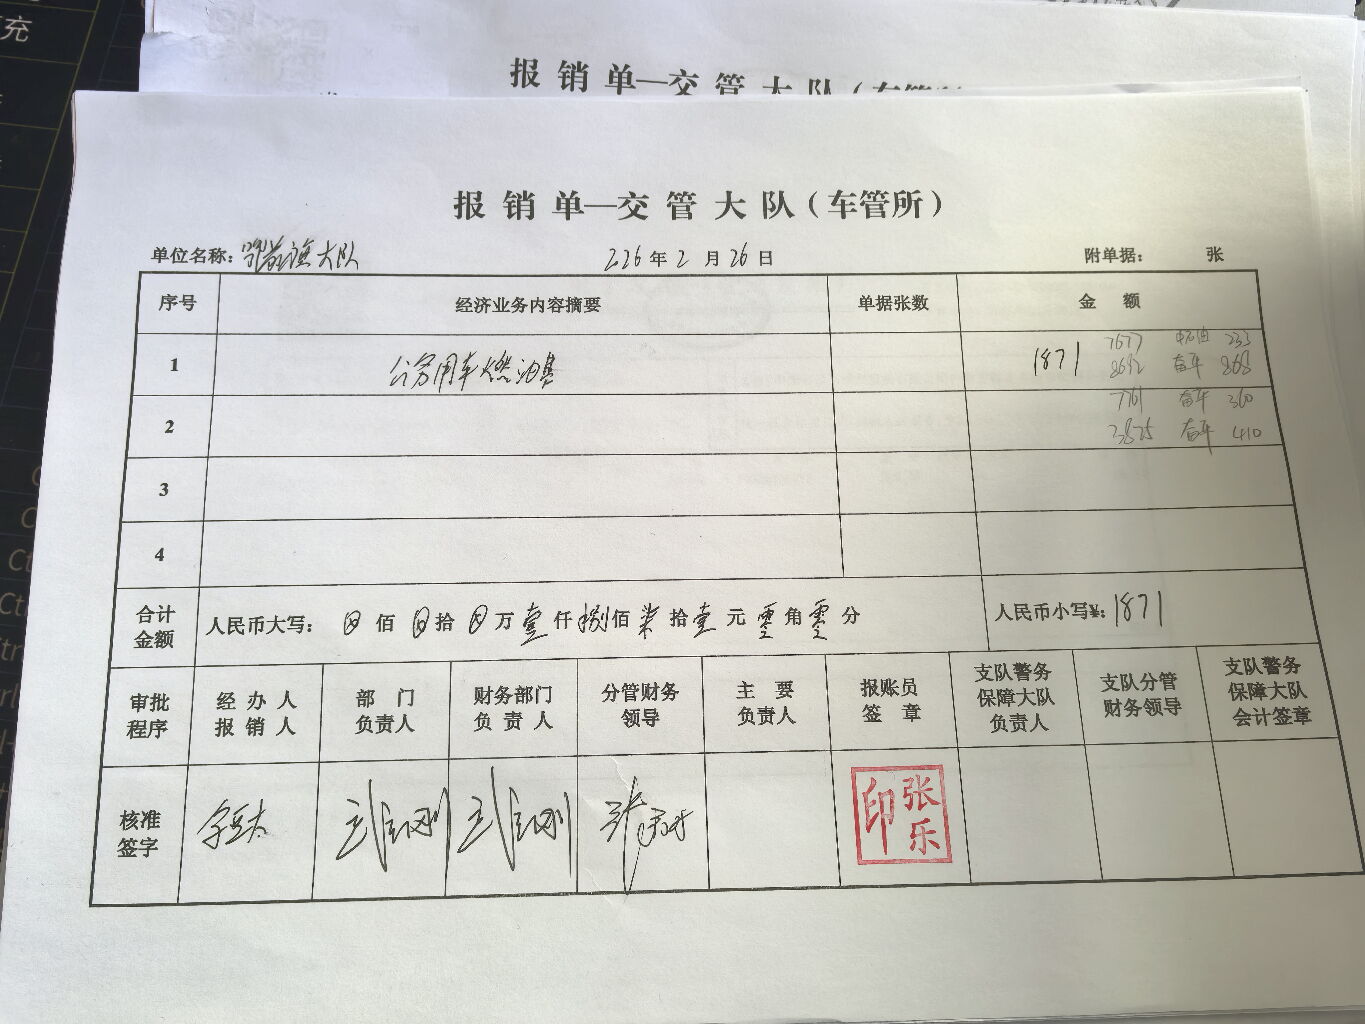 充
报 销 单—交 管 大 队（车管所
报 销 单—交 管 大 队（车管所）
单位名称：鄂前旗大队 226 年 2 月 26 日 附单据： 张
序号 经济业务内容摘要 单据张数 金 额
1 公务用车燃油费 1871 7677 中石油 233
8692 奋斗 868
2 7761 奋斗 360
3875 奋斗 410
3
4
合计金额 人民币大写： 佰 拾 万 壹 仟 捌 佰 柒 拾 壹 元 零 角 零 分 人民币小写¥: 1871
审批程序 经 办 人 报 销 人 部 门 负责人 财务部门 负 责 人 分管财务 领导 主 要 负责人 报账员 签 章 支队警务保障大队负责人 支队分管财务领导 支队警务保障大队会计签章
核准签字 张乐印